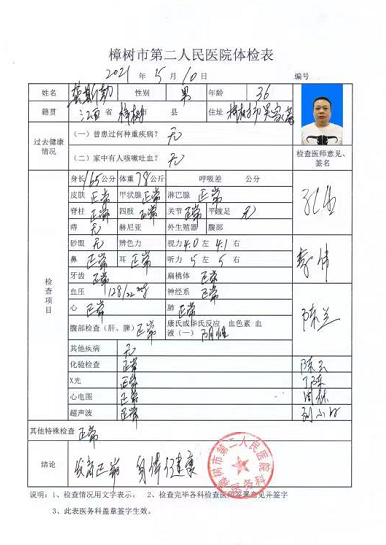 樟树市第二人民医院体检表
2021 年 5 月 10 日 编号
姓名 性别 男 年龄 36
籍贯 江西 省 樟树 市 县 住址
过去健康情况 (一)曾患过何种重疾病? 无
(二)家中有人咳嗽吐血? 无
检查医师意见、签名
检查项目
身长 165 公分 体重 公斤 呼吸差 公分
皮肤 正常 甲状腺 正常 淋巴腺 正常
脊柱 正常 四肢 正常 关节 正常 平蹠足 无
痔 无 赫尼亚 外生殖器 腹部
砂眼 无 辨色力 视力 4.0 左 4.1 右
鼻 正常 耳 正常 听力 5 左 5 右
牙齿 正常 扁桃体 正常
血压 神经系 正常
心 正常 肺 正常
腹部检查(肝、脾) 正常 康氏或华氏反应 血色素 血液(一) 阴性
其他疾病 无
化验检查 正常
X光 正常
心电图 正常
超声波 正常
其他特殊检查 正常
结论 正常 身体健康
樟树市第二人民医院
医务科
说明:1、检查情况用文字表示。 2、检查完毕各科检查医师签署意见并签字
3、此表医务科盖章签字生效。